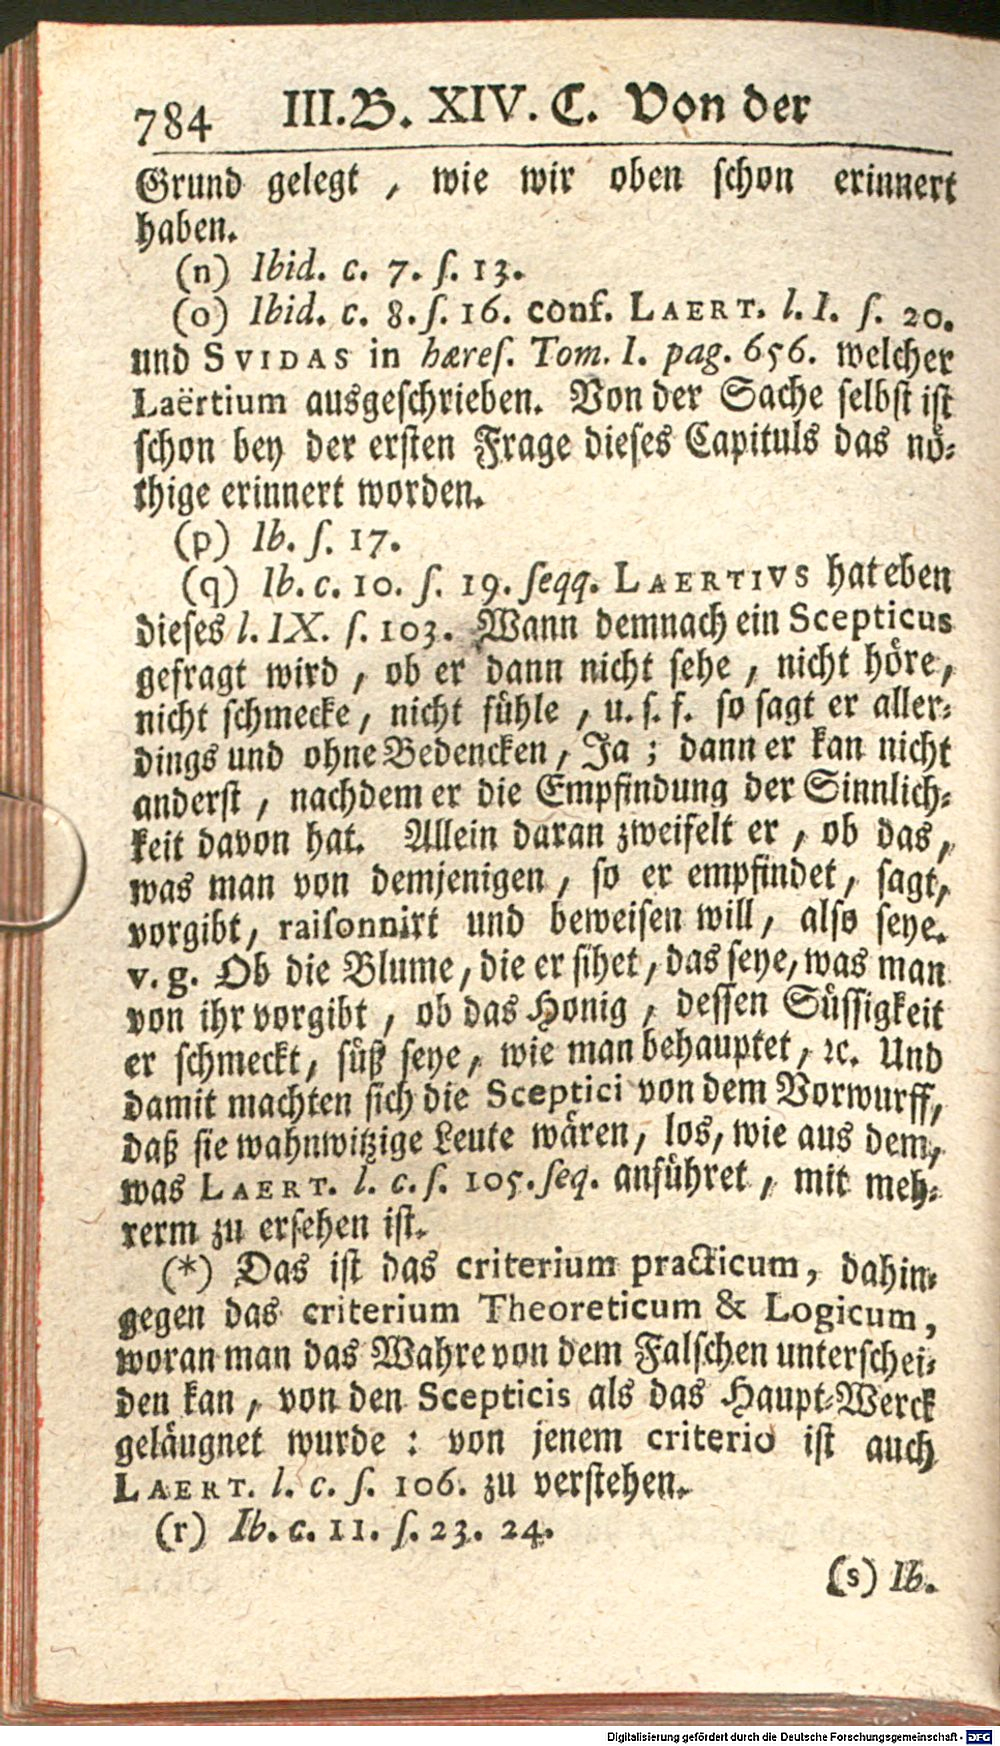 784 III. B. XIV. C. Von der
Grund gelegt , wie wir oben schon erinnert
haben.
(n) Ibid. c. 7. ſ. 13.
(o) Ibid. c. 8. ſ. 16. conf. LAERT. l. I. ſ. 20.
und SVIDAS in hæreſ. Tom. I. pag. 656. welcher
Laërtium ausgeschrieben. Von der Sache selbst ist
schon bey der ersten Frage dieses Capituls das nö-
thige erinnert worden.
(p) Ib. ſ. 17.
(q) Ib. c. 10. ſ. 19. ſeqq. LAERTIVS hat eben
dieses l. IX. ſ. 103. Wann demnach ein Scepticus
gefragt wird , ob er dann nicht sehe , nicht höre,
nicht schmecke, nicht fühle , u. s. f. so sagt er aller-
dings und ohne Bedencken, Ja ; dann er kan nicht
anderst , nachdem er die Empfindung der Sinnlich-
keit davon hat. Allein daran zweifelt er , ob das,
was man von demjenigen, so er empfindet, sagt,
vorgibt, raiſonnirt und beweisen will, also seye.
v. g. Ob die Blume, die er sihet, das seye, was man
von ihr vorgibt , ob das Honig , dessen Süssigkeit
er schmeckt, süß seye, wie man behauptet, ꝛc. Und
damit machten sich die Sceptici von dem Vorwurff,
daß sie wahnwitzige Leute wären, los, wie aus dem,
was LAERT. l. c. ſ. 105. ſeq. anführet , mit meh-
rerm zu ersehen ist.
(*) Das ist das criterium practicum, dahin-
gegen das criterium Theoreticum & Logicum,
woran man das Wahre von dem Falschen unterschei-
den kan , von den Scepticis als das Haupt-Werck
geläugnet wurde : von jenem criterio ist auch
LAERT. l. c. ſ. 106. zu verstehen.
(r) Ib. c. 11. ſ. 23. 24.
(s) Ib.
Digitalisierung gefördert durch die Deutsche Forschungsgemeinschaft - DFG